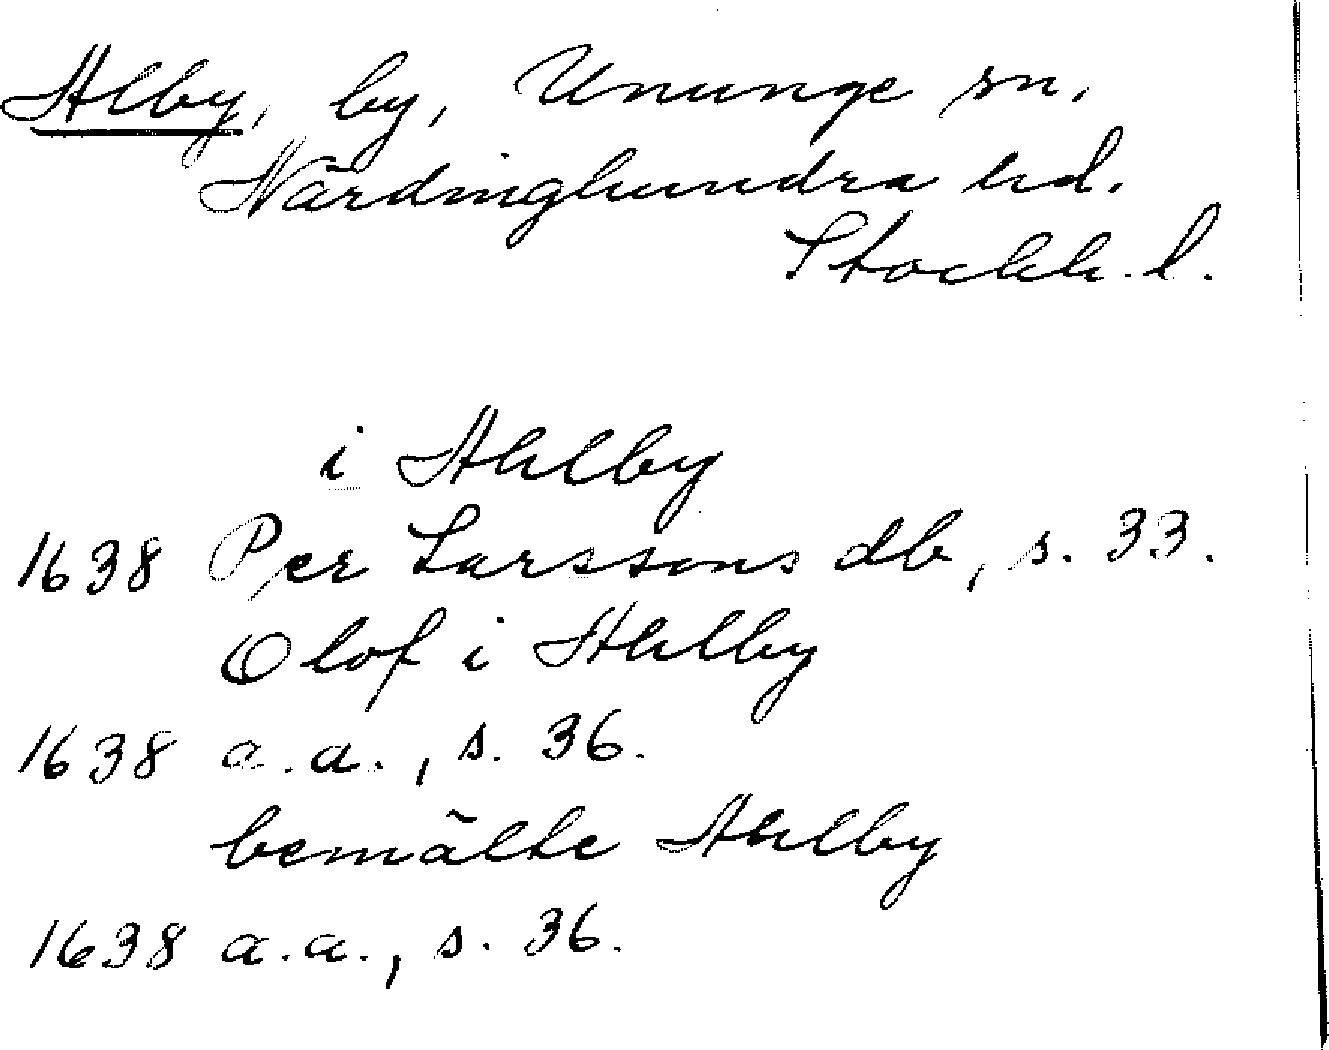 Alby, by, Ununge sn,
Närdinghundra hd.
Stockh. l.
i Ahlby
1638 Per Larssons db, s. 33.
Olof i Ahlby
1638 a.a., s. 36.
bemälte Ahlby
1638 a.a., s. 36.